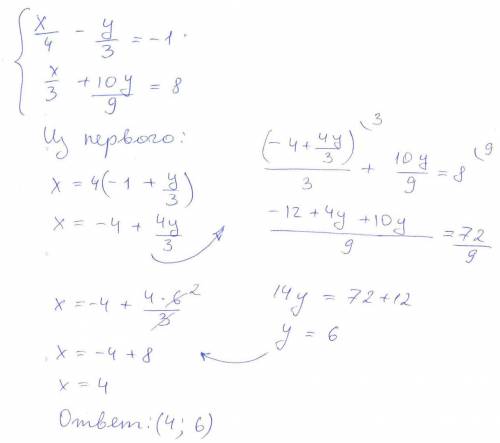 x/4 - y/3 = -1
x/3 + 10y/9 = 8
Из первого:
x = 4(-1 + y/3)
x = -4 + 4y/3
(-4 + 4y/3)^3/3 + 10y/9 = 8^9
-12 + 4y + 10y/9 = 72/9
14y = 72+12
y = 6
x = -4 + 4·6^2/3
x = -4 + 8
x = 4
Ответ: (4; 6)